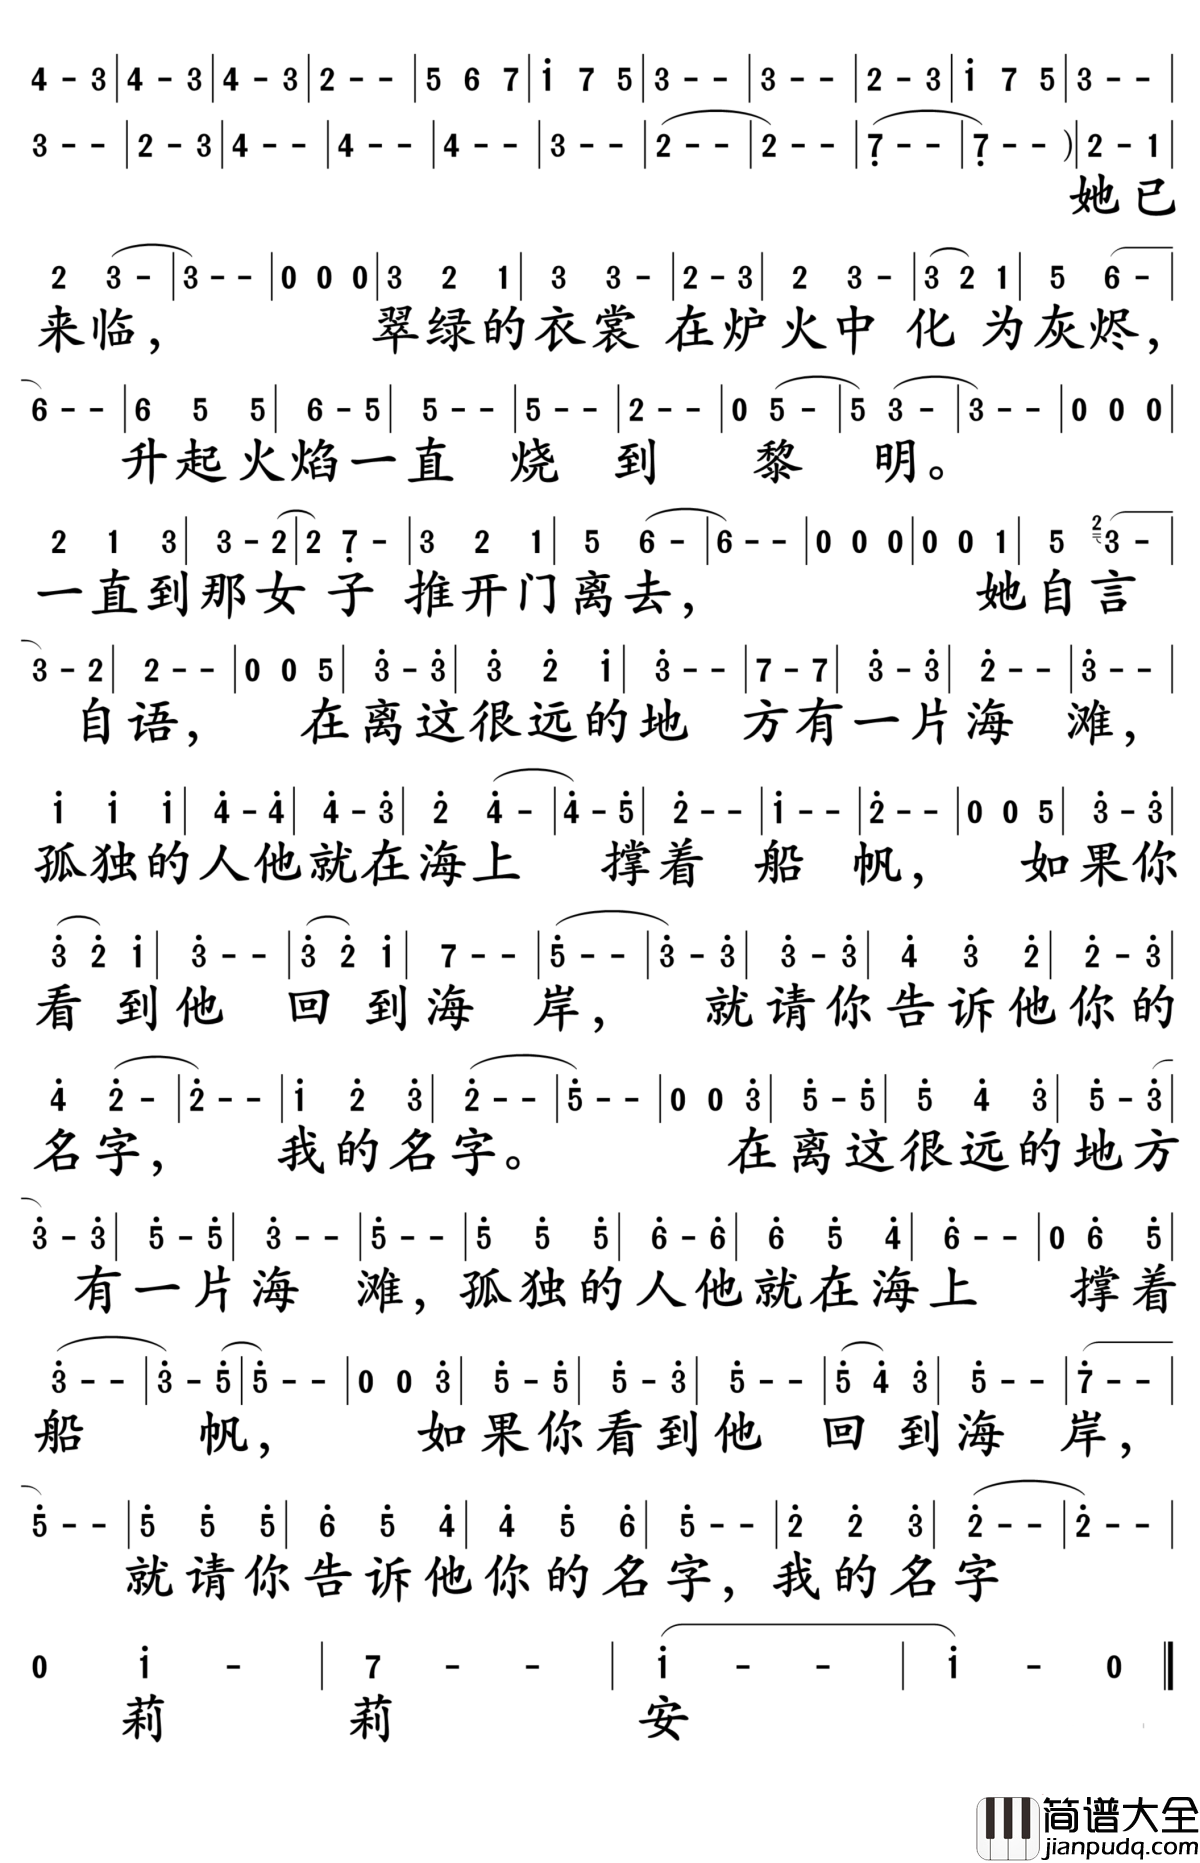 4 - 3 | 4 - 3 | 4 - 3 | 2 - - | 5 6 7 | i 7 5 | 3 - - | 3 - - | 2 - 3 | i 7 5 | 3 - - |
3 - - | 2 - 3 | 4 - - | 4 - - | 4 - - | 3 - - | 2 - - | 2 - - | 7 - - | 7 - - ) | 2 - 1 |
她已
2 3 - | 3 - - | 0 0 0 | 3 2 1 | 3 3 - | 2 - 3 | 2 3 - | 3 2 1 | 5 6 - |
来临， 翠绿的衣裳在炉火中化为灰烬，
6 - - | 6 5 5 | 6 - 5 | 5 - - | 5 - - | 2 - - | 0 5 - | 5 3 - | 3 - - | 0 0 0 |
升起火焰一直烧到黎明。
2 1 3 | 3 - 2 | 2 7 - | 3 2 1 | 5 6 - | 6 - - | 0 0 0 | 0 0 1 | 5 2 3 - |
一直到那女子推开门离去， 她自言
3 - 2 | 2 - - | 0 0 5 | 3 - 3 | 3 2 i | 3 - - | 7 - 7 | 3 - 3 | 2 - - | 3 - - |
自语， 在离这很远的地方有一片海滩，
i i i | 4 - 4 | 4 - 3 | 2 4 - | 4 - 5 | 2 - - | i - - | 2 - - | 0 0 5 | 3 - 3 |
孤独的人他就在海上撑着船帆， 如果你
3 2 i | 3 - - | 3 2 i | 7 - - | 5 - - | 3 - 3 | 3 - 3 | 4 3 2 | 2 - 3 |
看到他回到海岸， 就请你告诉他你的
4 2 - | 2 - - | i 2 3 | 2 - - | 5 - - | 0 0 3 | 5 - 5 | 5 4 3 | 5 - 3 |
名字， 我的名字。 在离这很远的地方
3 - 3 | 5 - 5 | 3 - - | 5 - - | 5 5 5 | 6 - 6 | 6 5 4 | 6 - - | 0 6 5 |
有一片海滩，孤独的人他就在海上撑着
3 - - | 3 - 5 | 5 - - | 0 0 3 | 5 - 5 | 5 - 3 | 5 - - | 5 4 3 | 5 - - | 7 - - |
船帆， 如果你看到他回到海岸，
5 - - | 5 5 5 | 6 5 4 | 4 5 6 | 5 - - | 2 2 3 | 2 - - | 2 - - |
就请你告诉他你的名字，我的名字
0 i - | 7 - - | i - - | i - 0 ‖
莉莉安
简谱大全
jianpudq.com